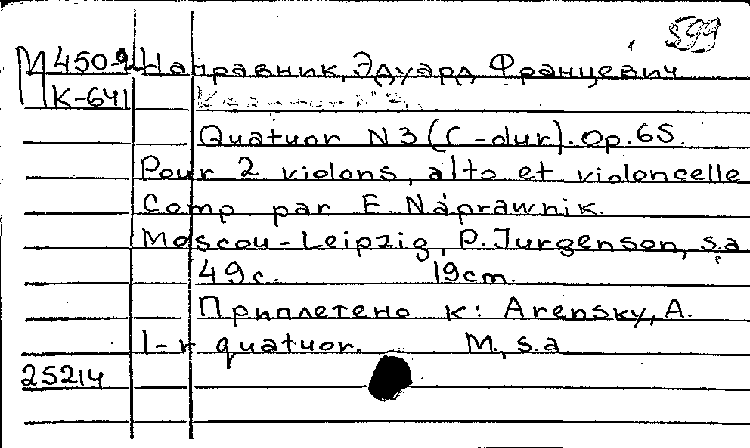 599
М 450-2 Направник, Эдуард Францевич
К-641
Quatuor N 3 (C-dur). Op. 65.
Pour 2 violons, alto et violoncelle
Comp par E. Náprawnik.
Moscou-Leipzig, P. Jurgenson, s.a
49 c. 19 cm.
Приплетено к: Arensky, A.
1-r quatuor. М., s.a
25214